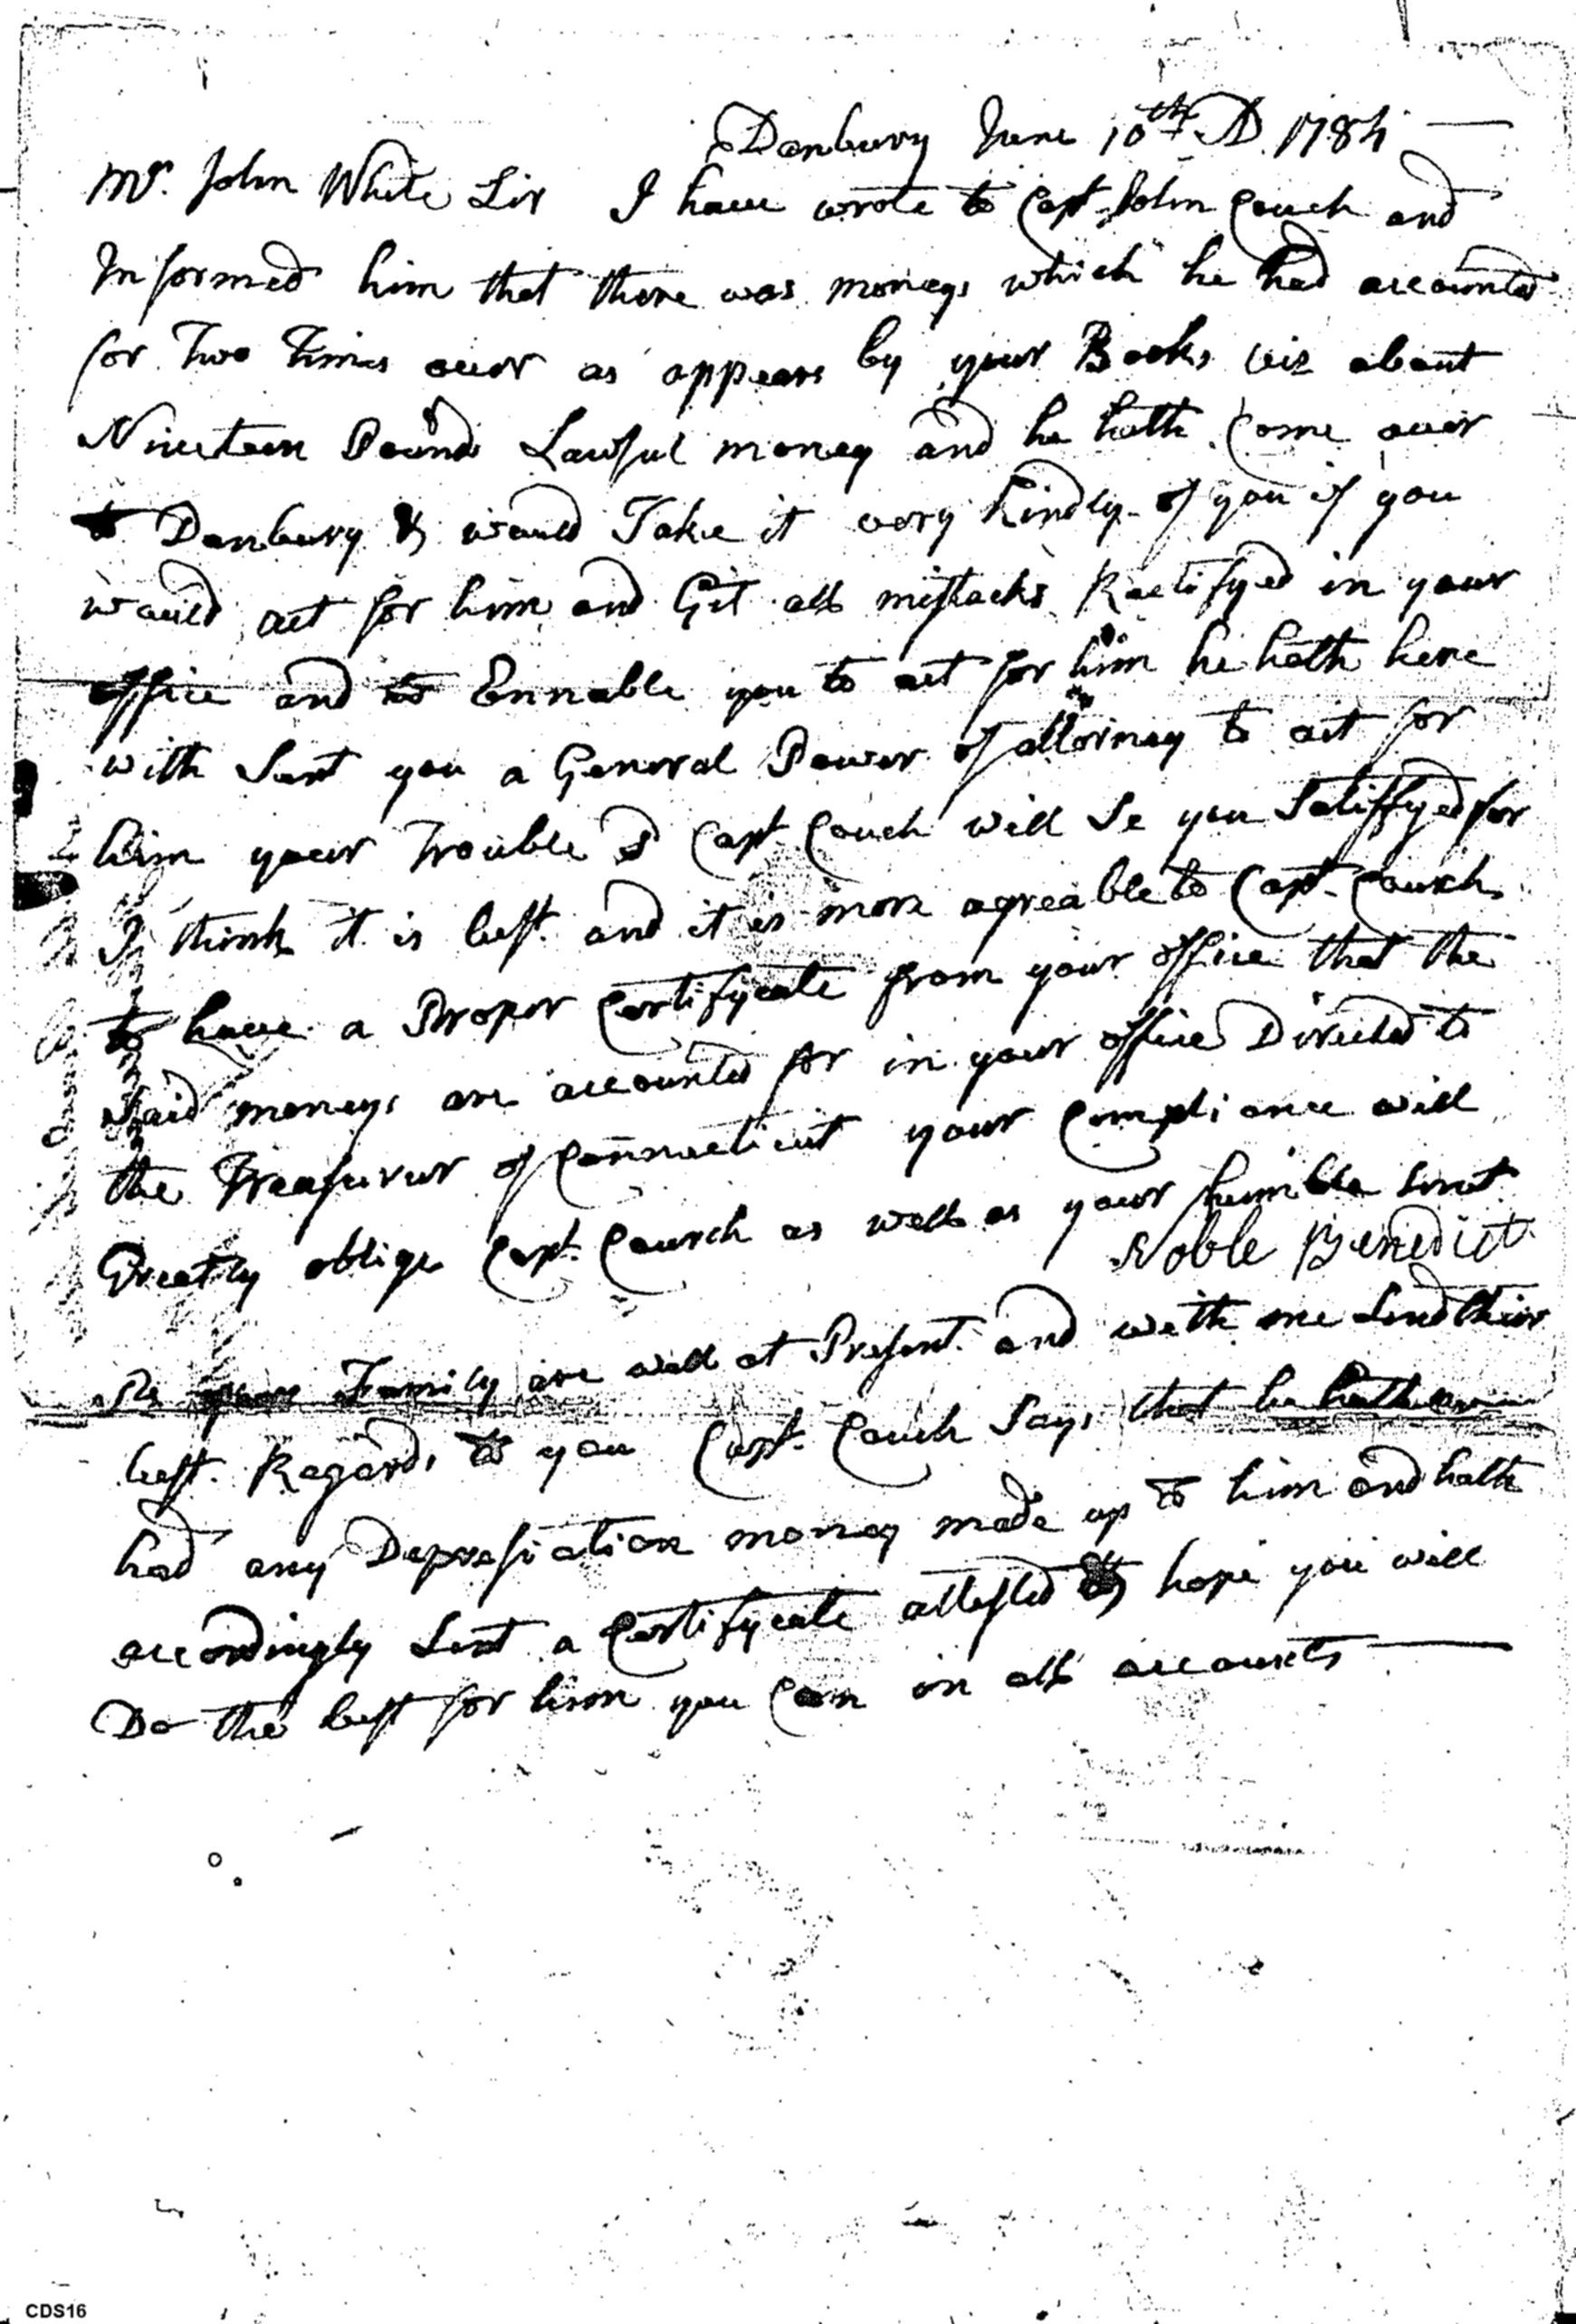 Danbury June 10th AD. 1784
Mr. John White Sir I have wrote to Capt John Couch and
Informed him that there was moneys which he had accounted
for Two Times over as appears by your Books viz about
Nineteen Pounds Lawful money and he hath Come over
to Danbury & would Take it very kindly of you if you
would act for him and Git all mistacks Rectifyed in your
office and to Ennable you to act for him he hath here
with Sent you a General Power of attorney to act for
him your Trouble Capt Couch will Se you Satisfyed for
I think it is best and it is more agreable to Capt Couch
to have a Proper Certifycate from your office that the
Said moneys are accounted for in your office Directed to
the Treasurer of Connecticut your Compliance will
Greatly oblige Capt. Couch as well as your humble Servt
Noble Benedict
your Family are well at Present and with me Send their
best Regards to you Capt. Couch Says that he hath
had any Depresiation money made up to him and hath
accordingly Sent a Certifycate attested & hope you will
Do the best for him you Can in all accounts
CDS16